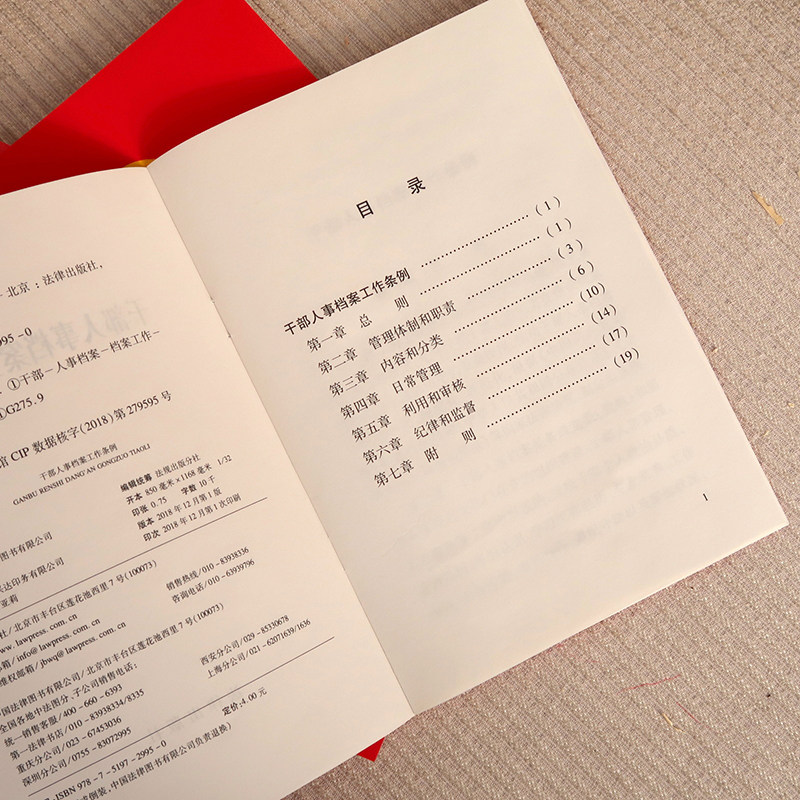 北京：法律出版社，
995－0
①干部－人事档案－档案工作－
G275.9
馆 CIP 数据核字(2018)第 279595 号
干部人事档案工作条例
GANBU RENSHI DANG'AN GONGZUO TIAOLI
编辑统筹 法规出版分社
开本 850 毫米×1168 毫米 1/32
印张 0.75 字数 10 千
版本 2018 年 12 月第 1 版
印次 2018 年 12 月第 1 次印刷
图书有限公司
达印务有限公司
亚莉
社/北京市丰台区莲花池西里 7 号(100073)
www.lawpress.com.cn 销售热线/010－83938336
邮箱/info@lawpress.com.cn 咨询电话/010－63939796
维权邮箱/jbwq@lawpress.com.cn
国法律图书有限公司/北京市丰台区莲花池西里 7 号(100073)
全国各地中法图分、子公司销售电话：
统一销售客服/400－660－6393
第一法律书店/010－83938334/8335 西安分公司/029－85330678
重庆分公司/023－67453036 上海分公司/021－62071639/1636
深圳分公司/0755－83072995
ISBN 978－7－5197－2995－0 定价：4.00 元
倒装，中国法律图书有限公司负责退换)
目 录
干部人事档案工作条例 …… (1)
第一章 总 则 …… (1)
第二章 管理体制和职责 …… (3)
第三章 内容和分类 …… (6)
第四章 日常管理 …… (10)
第五章 利用和审核 …… (14)
第六章 纪律和监督 …… (17)
第七章 附 则 …… (19)
1